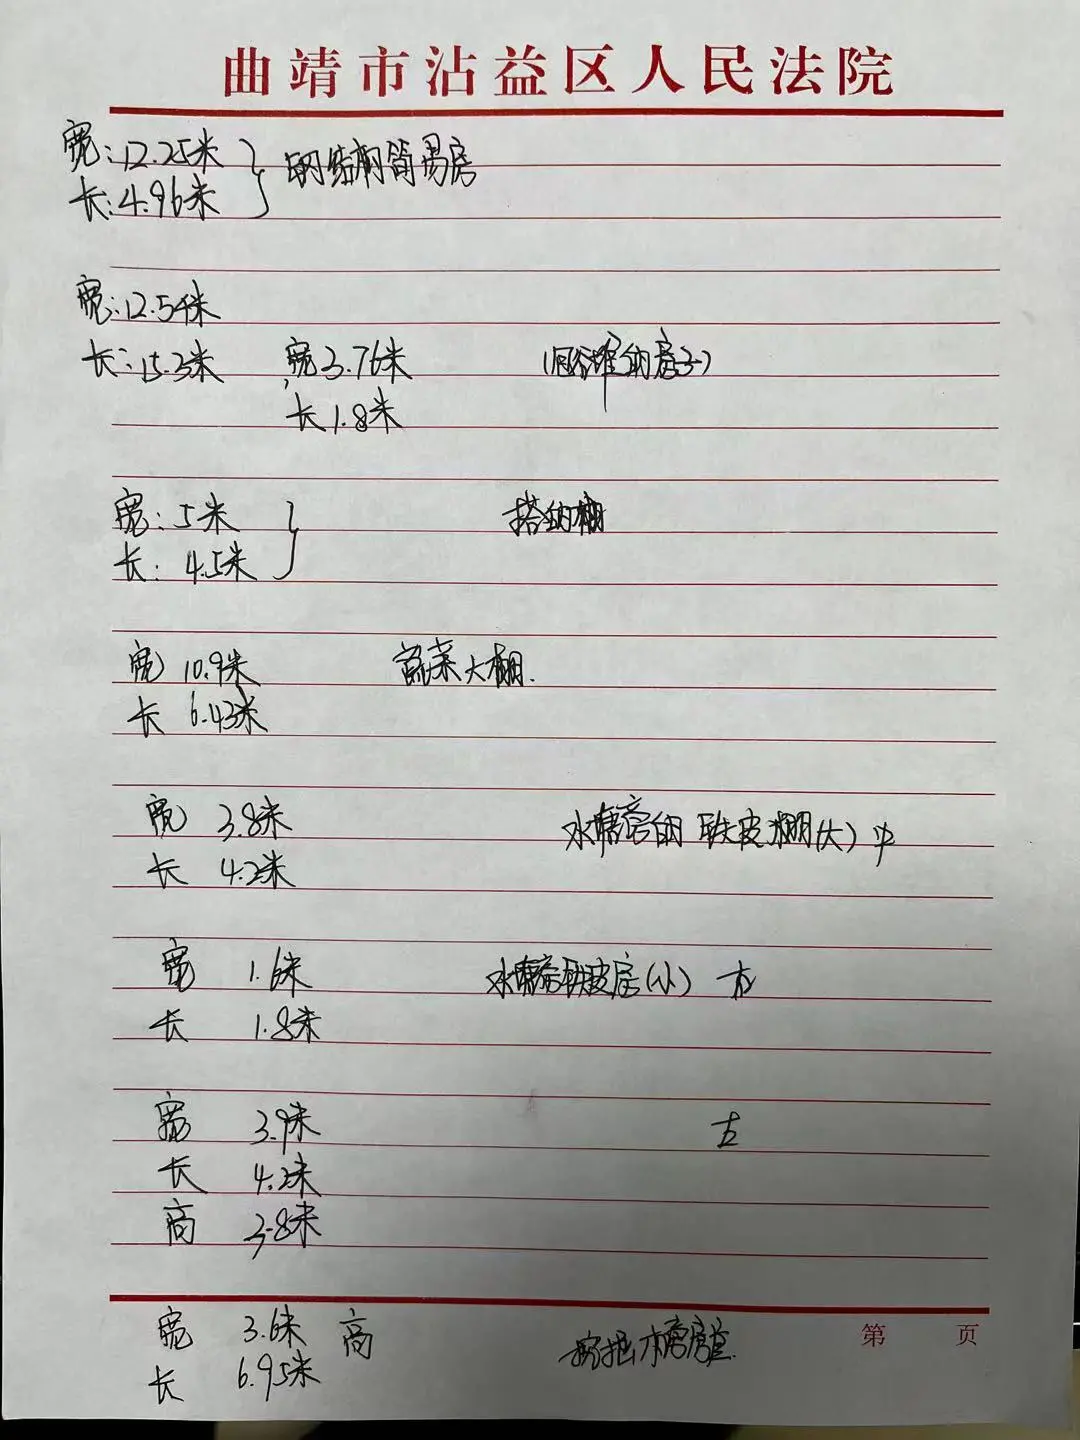 曲靖市沾益区人民法院
宽:12.25米
长:4.96米 钢结构简易房
宽:12.54米
长:15.3米 宽3.76米 的房子)
长1.8米
宽:5米 搭的棚
长:4.5米
宽 10.9米 蔬菜大棚.
长 6.43米
宽 3.8米 水塘旁的 铁皮棚(大)中
长 4.2米
宽 1.6米 水塘旁铁皮房(小) 右
长 1.8米
宽 3.9米 左
长 4.2米
高 3.8米
宽 3.6米 高
长 6.95米
第 页